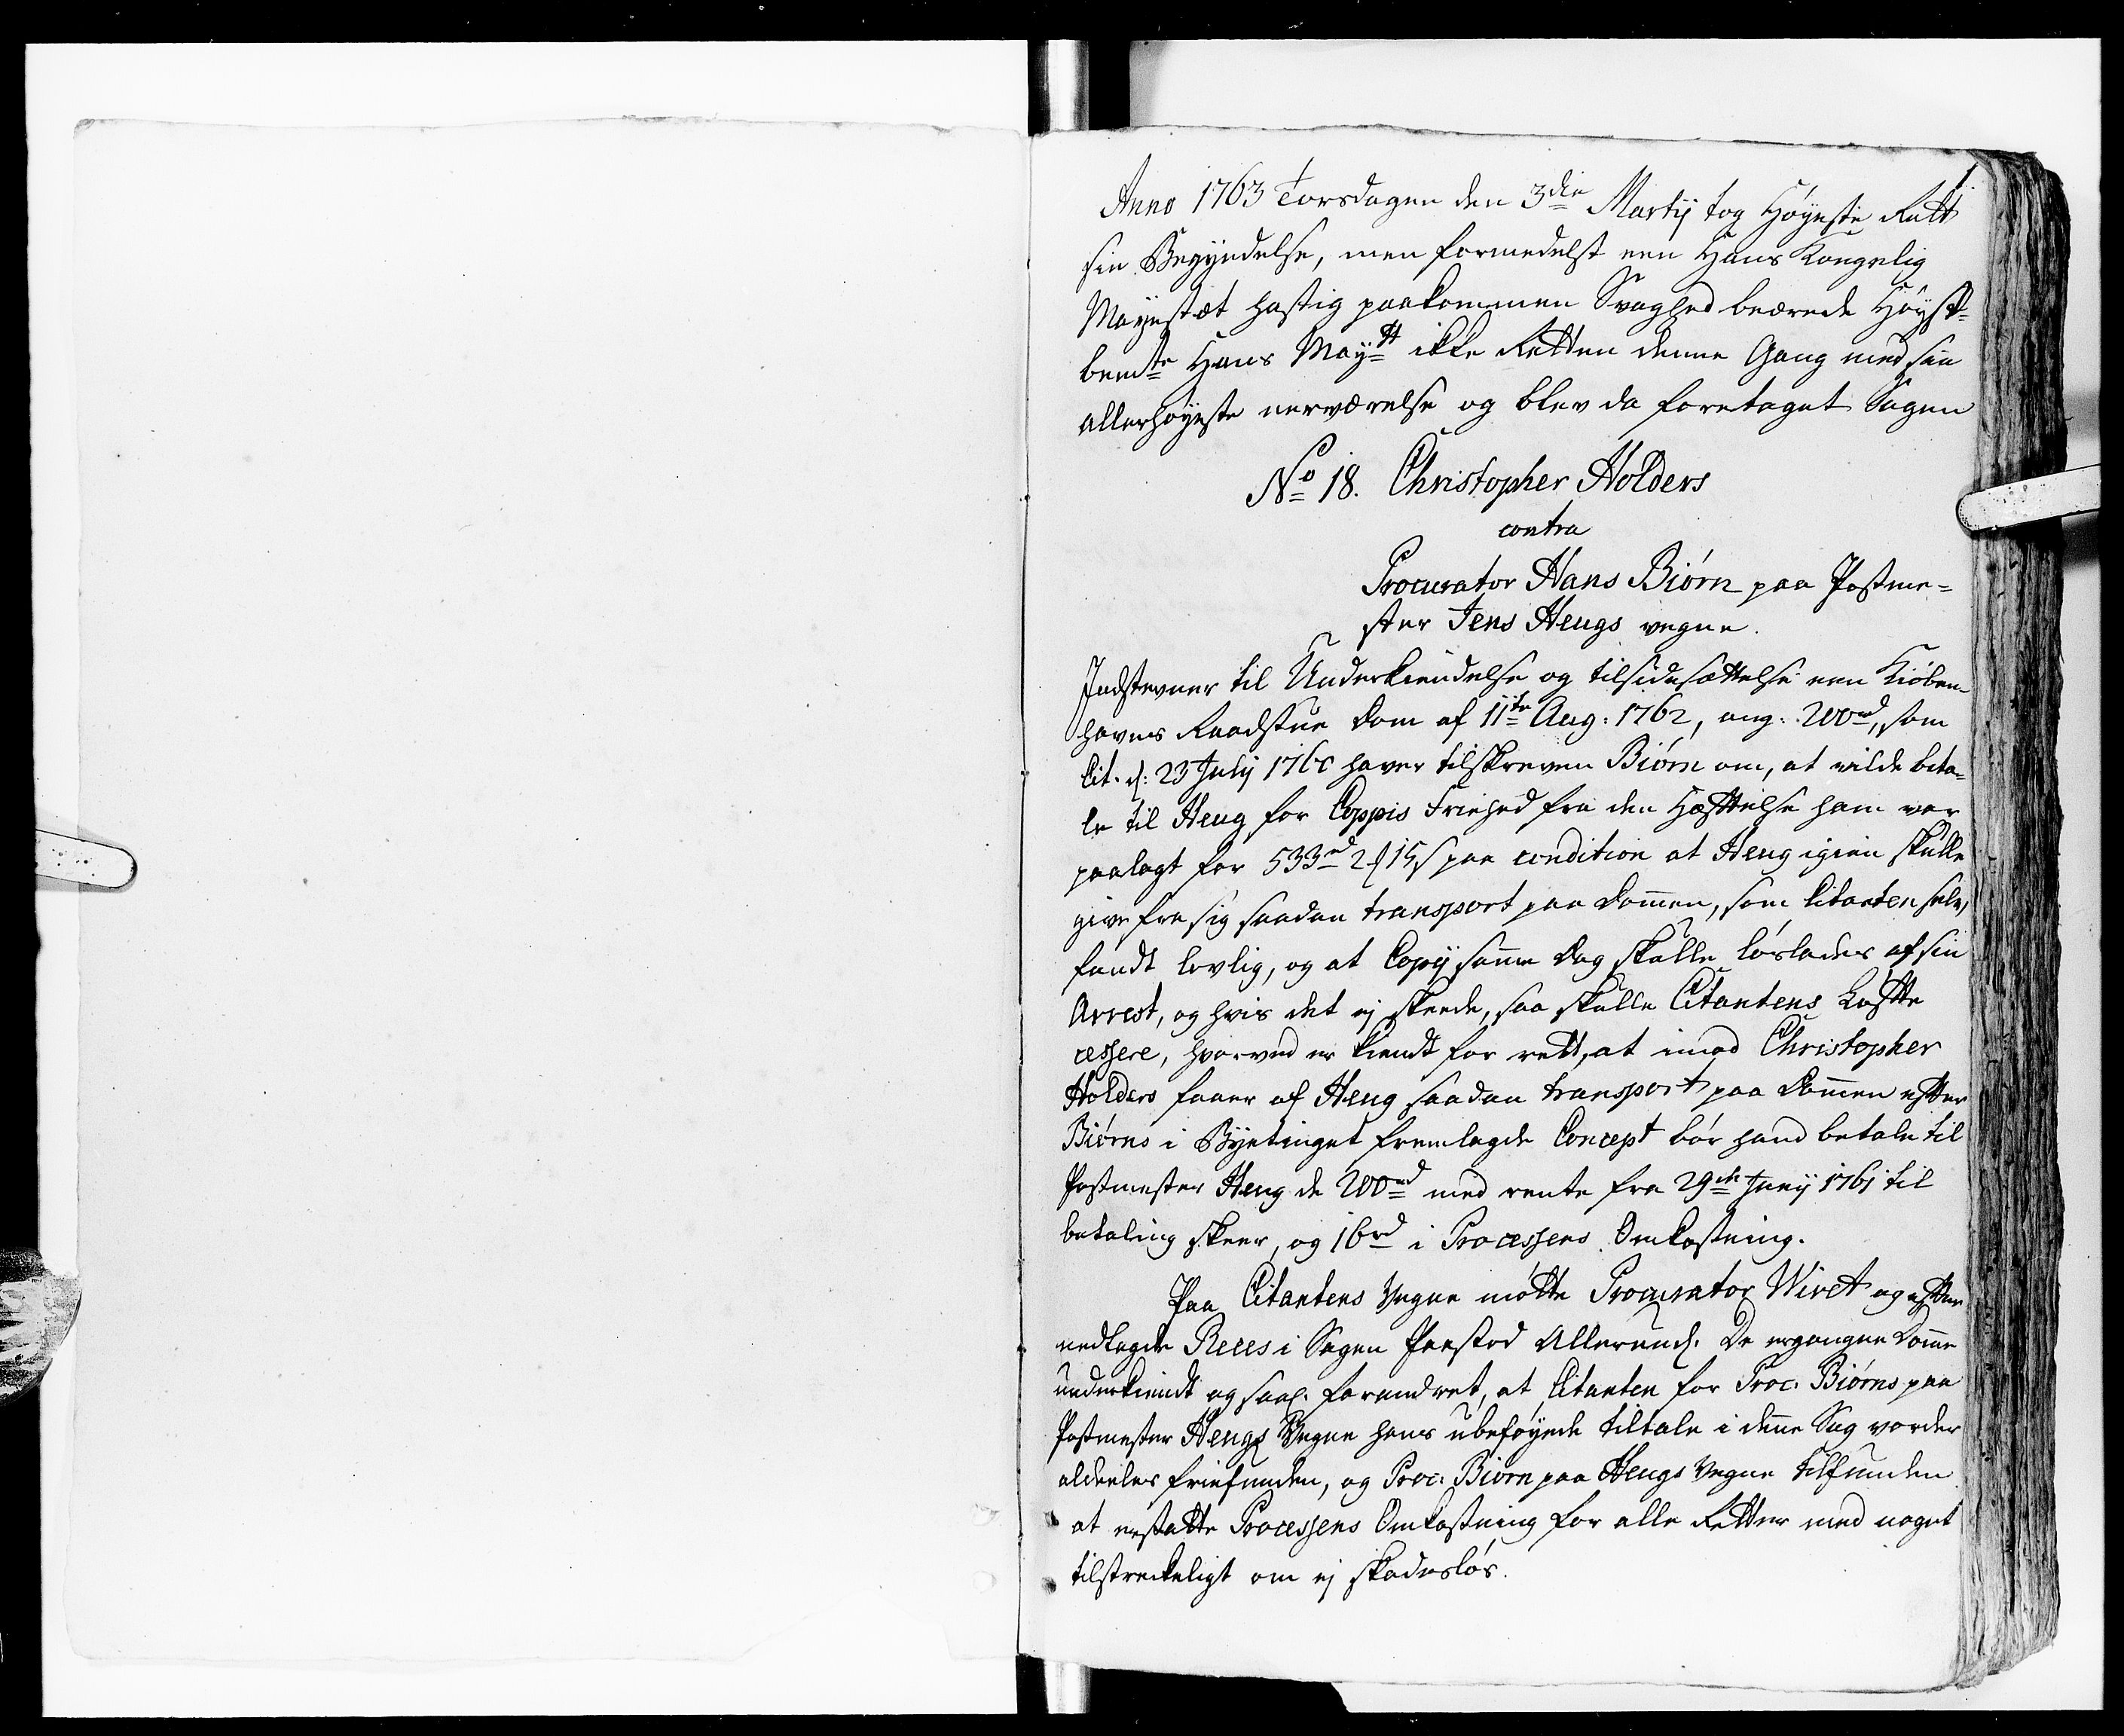 1.
Anno 1763 Torsdagen den 3die Martij tog Høyeste Rett
sin Begyndelse, men formedelst een Hans Kongelig
Mayestæt hastig paakommen Svaghed beærede Høyst-
bemte Hans Maytt ikke Retten denne Gang med sin
allerhøyeste nerværelse og blev da foretaget Sagen
No 18. Christopher Holders
contra
Procurator Hans Biørn paa Postme-
ster Jens Hengs vegne.
Indstevner til Underkiendelse og tilsidesættelse een Kiøben-
havns Raadstue Dom af 11te Aug: 1762, ang: 200rd, som
Cit. d: 23 July 1760 haver tilskreven Biørn om, at vilde beta-
le til Heng for Coppis Friehed fra den Hæftelse ham var
paalagt for 533rd 2 ꝳ 15 s paa condition at Heng igien skulle
give fra sig saadan transport paa Dom̅en, som Citanten selv
fandt lovlig, og at Copij sam̅e Dag skulle løslades af sin
Arrest, og hvis det ej skeede, saa skulle Citantens Løfte
cessere, hvorved er kiendt for rett, at imod Christopher
Holders faaer af Heng saadan transport paa Dom̅en efter
Biørns i Byetinget fremlagde Concept bør hand betale til
Postmester Heng de 200rd med rente fra 29de Junij 1761 til
betaling skeer, og 16rd i Processens Omkostning.
Paa Citantens Vegne mødte Procurator Wivet og efter
nedlagde Reces i Sagen Paastod Allerund. De ergangne Dom̅e
underkiendt og saal. forandret, at Citanten for Proc: Biørns paa
Postmester Hengs Vegne hans ubeføyede tiltale i den̅e Sag vorder
aldeeles friefunden, og Proc: Biørn paa Hengs Vegne tilfunden
at erstatte Processens Omkostning for alle Retter med noget
tilstreckeligt om ej skadesløs.